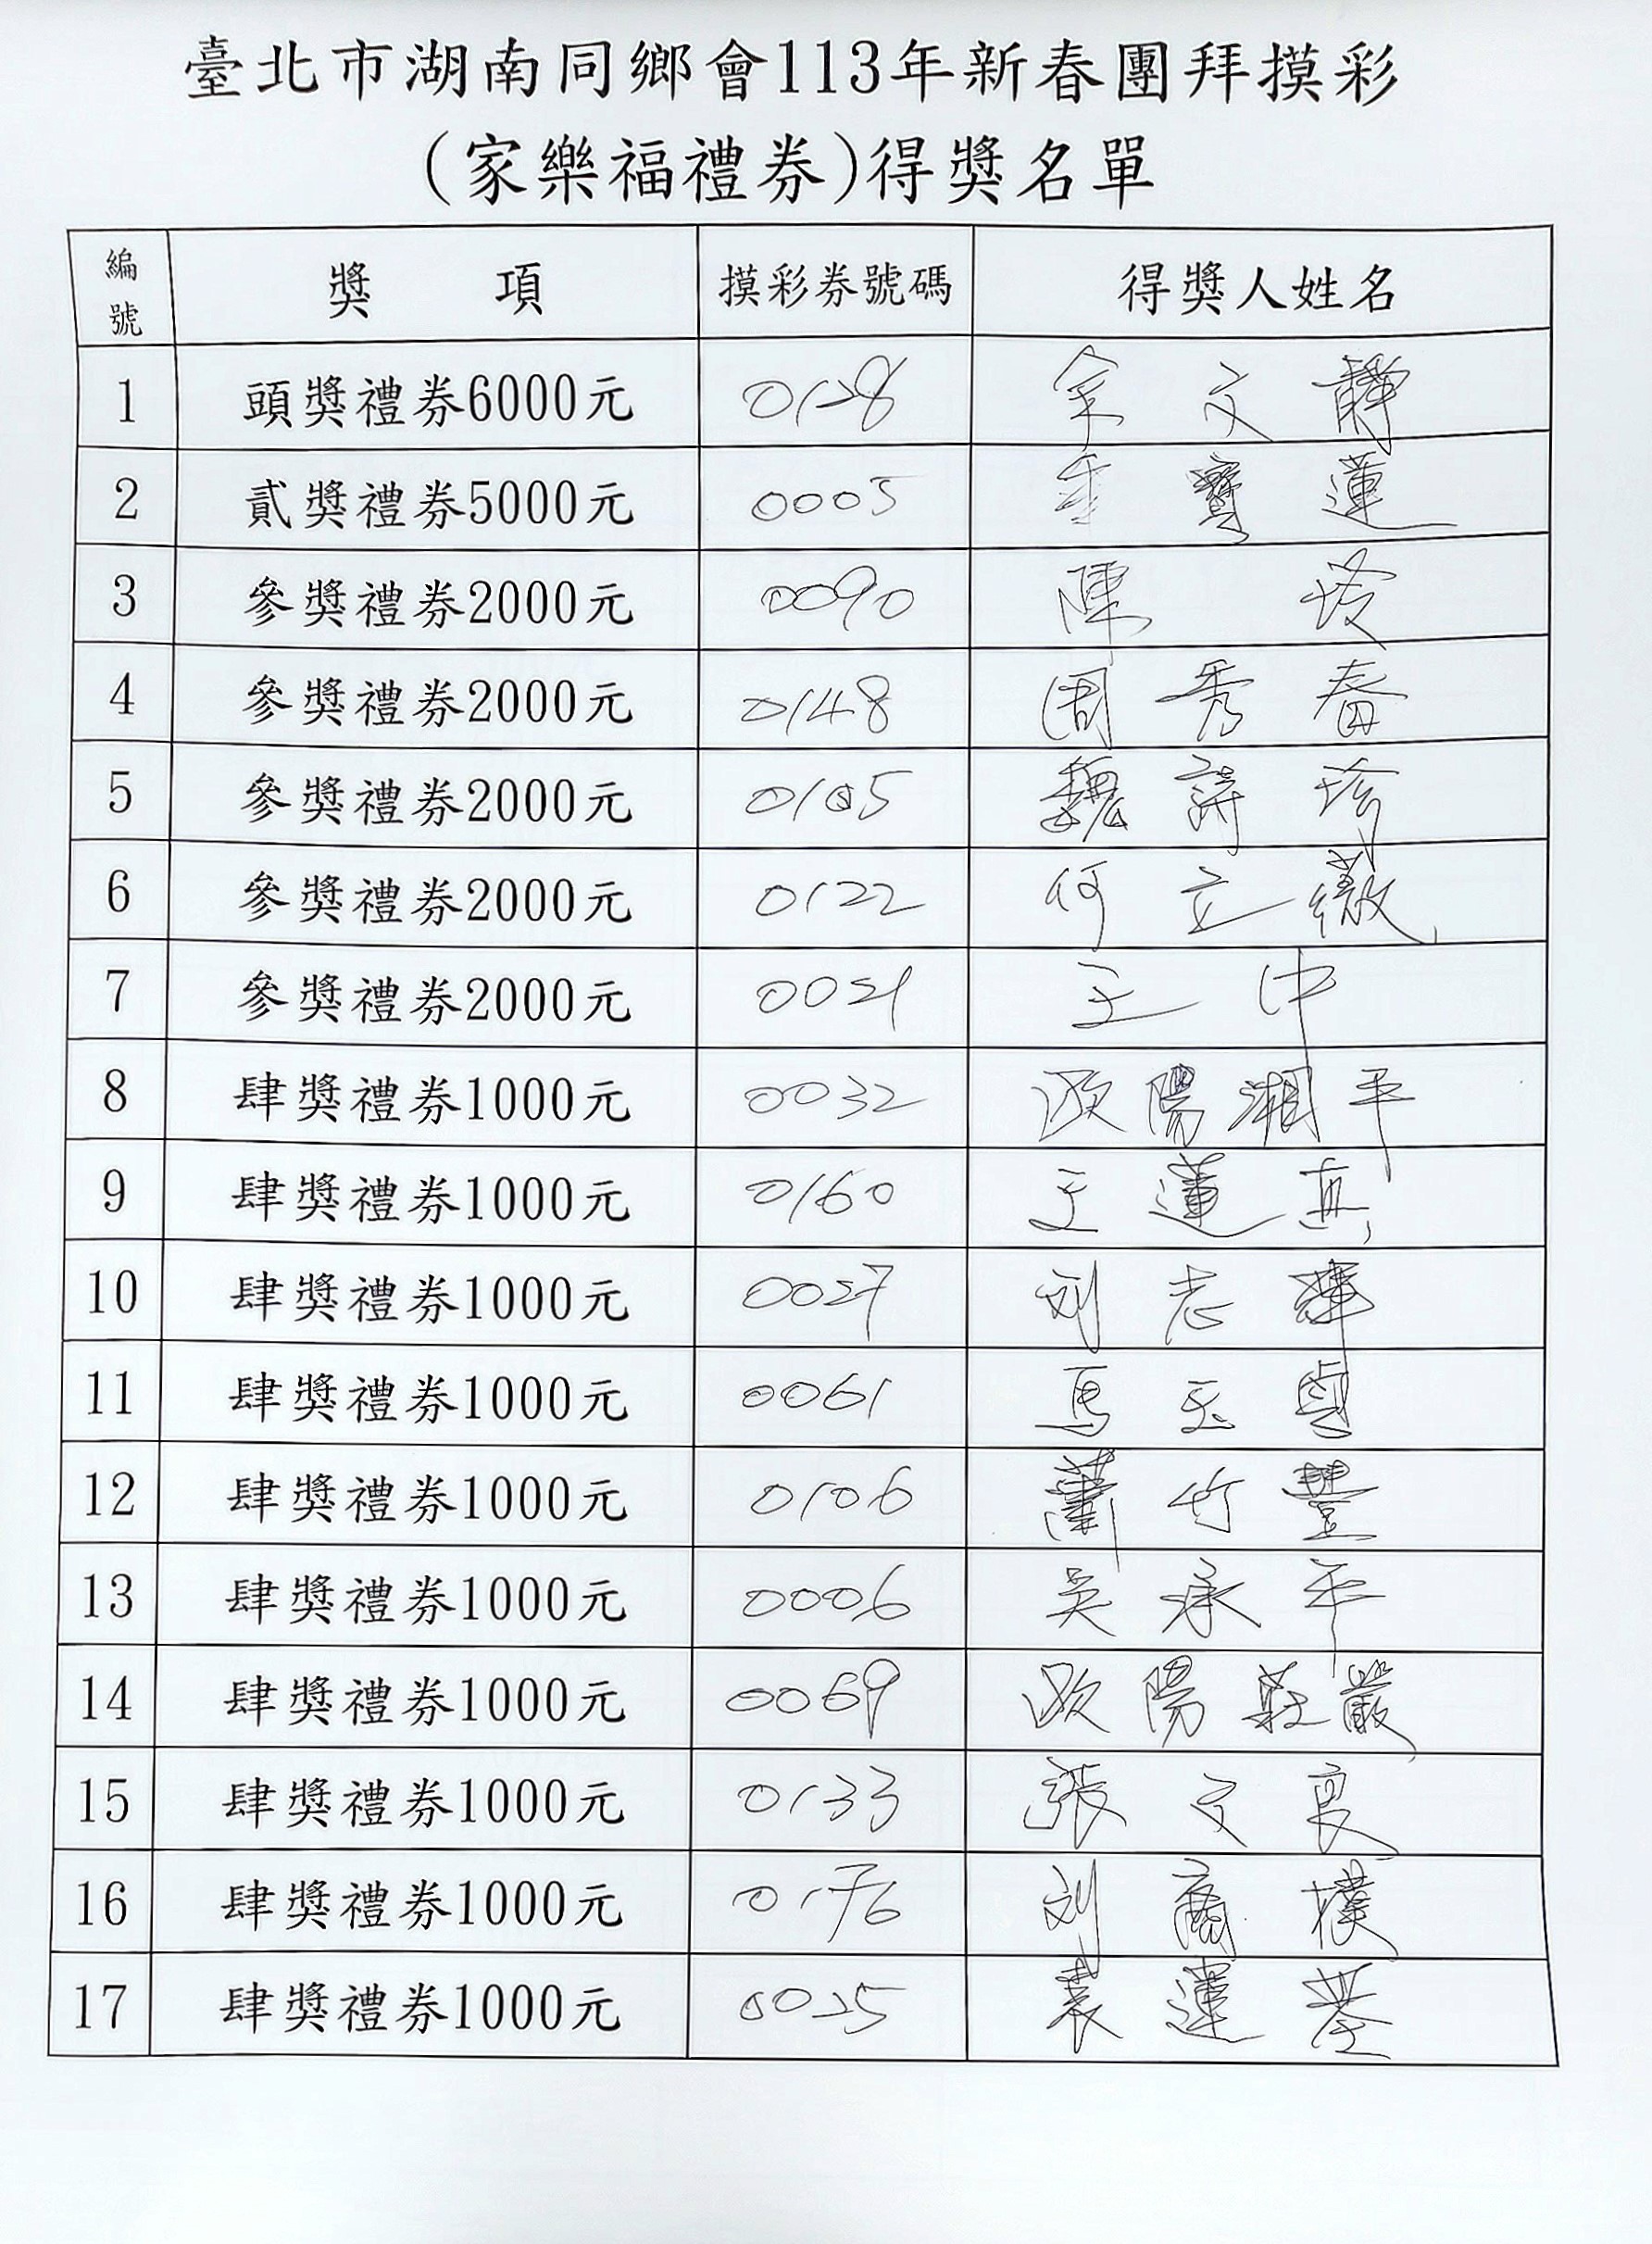 臺北市湖南同鄉會113年新春團拜摸彩
(家樂福禮券)得獎名單
編號 獎 項 摸彩券號碼 得獎人姓名
1 頭獎禮券6000元 0128 余文靜
2 貳獎禮券5000元 0005 李寶蓮
3 參獎禮券2000元 0090 陳
4 參獎禮券2000元 0148 周秀春
5 參獎禮券2000元 0105 魏詩珍
6 參獎禮券2000元 0122 何立薇
7 參獎禮券2000元 0021 王中
8 肆獎禮券1000元 0032 歐陽湘平
9 肆獎禮券1000元 0160 王蓮真
10 肆獎禮券1000元 0027 刘志輝
11 肆獎禮券1000元 0061 馬玉貞
12 肆獎禮券1000元 0106 蕭竹豐
13 肆獎禮券1000元 0006 吳承平
14 肆獎禮券1000元 0069 歐陽莊嚴
15 肆獎禮券1000元 0133 張文良
16 肆獎禮券1000元 0176 刘
17 肆獎禮券1000元 0025 運